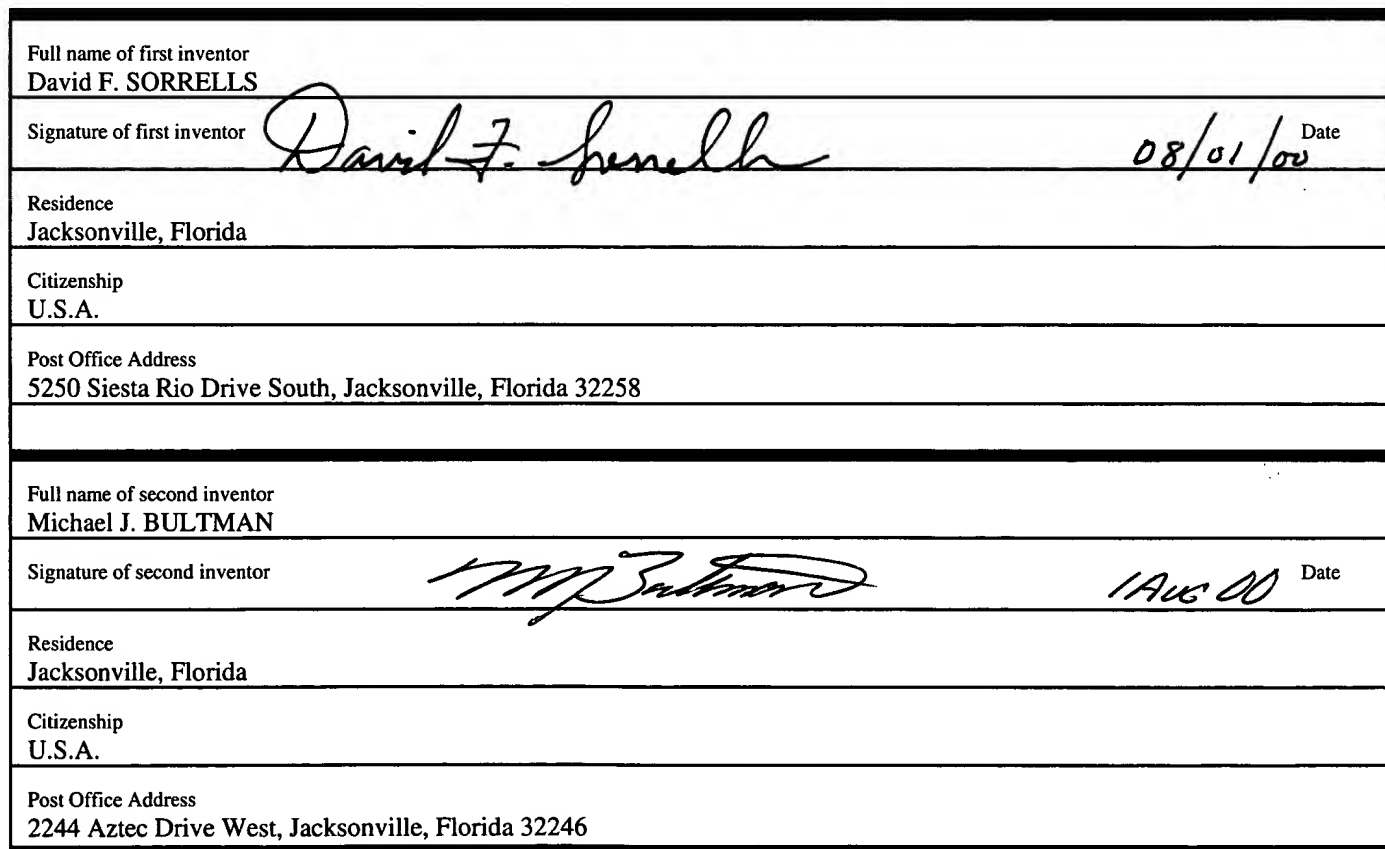 Full name of first inventor
David F. SORRELLS
Signature of first inventor David F. Sorrells 08/01/00 Date
Residence
Jacksonville, Florida
Citizenship
U.S.A.
Post Office Address
5250 Siesta Rio Drive South, Jacksonville, Florida 32258
Full name of second inventor
Michael J. BULTMAN
Signature of second inventor MJ Bultman 1 AUG 00 Date
Residence
Jacksonville, Florida
Citizenship
U.S.A.
Post Office Address
2244 Aztec Drive West, Jacksonville, Florida 32246